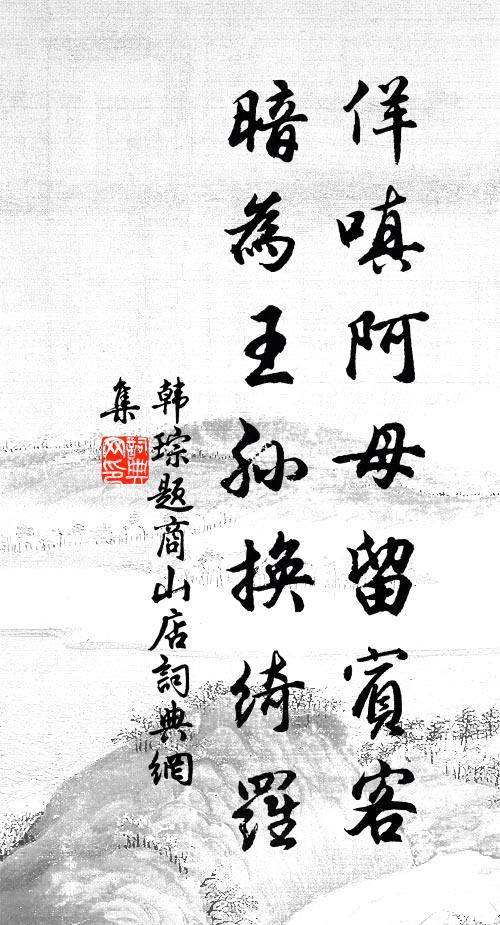 佯嗔阿母留賓客
暗為王孫換綺羅
韩琮题商山店詞典網
集
詞典網印